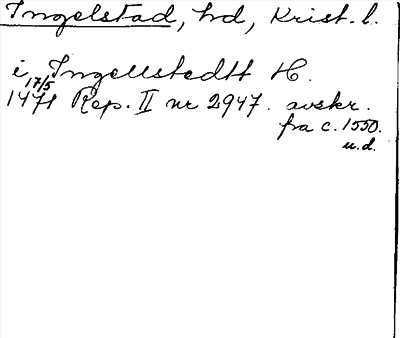 Ingelstad, hd, Krist. l.
i Ingellstedtt H.
17/5
1471 Rep. II nr 2947. avskr.
fra c. 1550.
u.d.